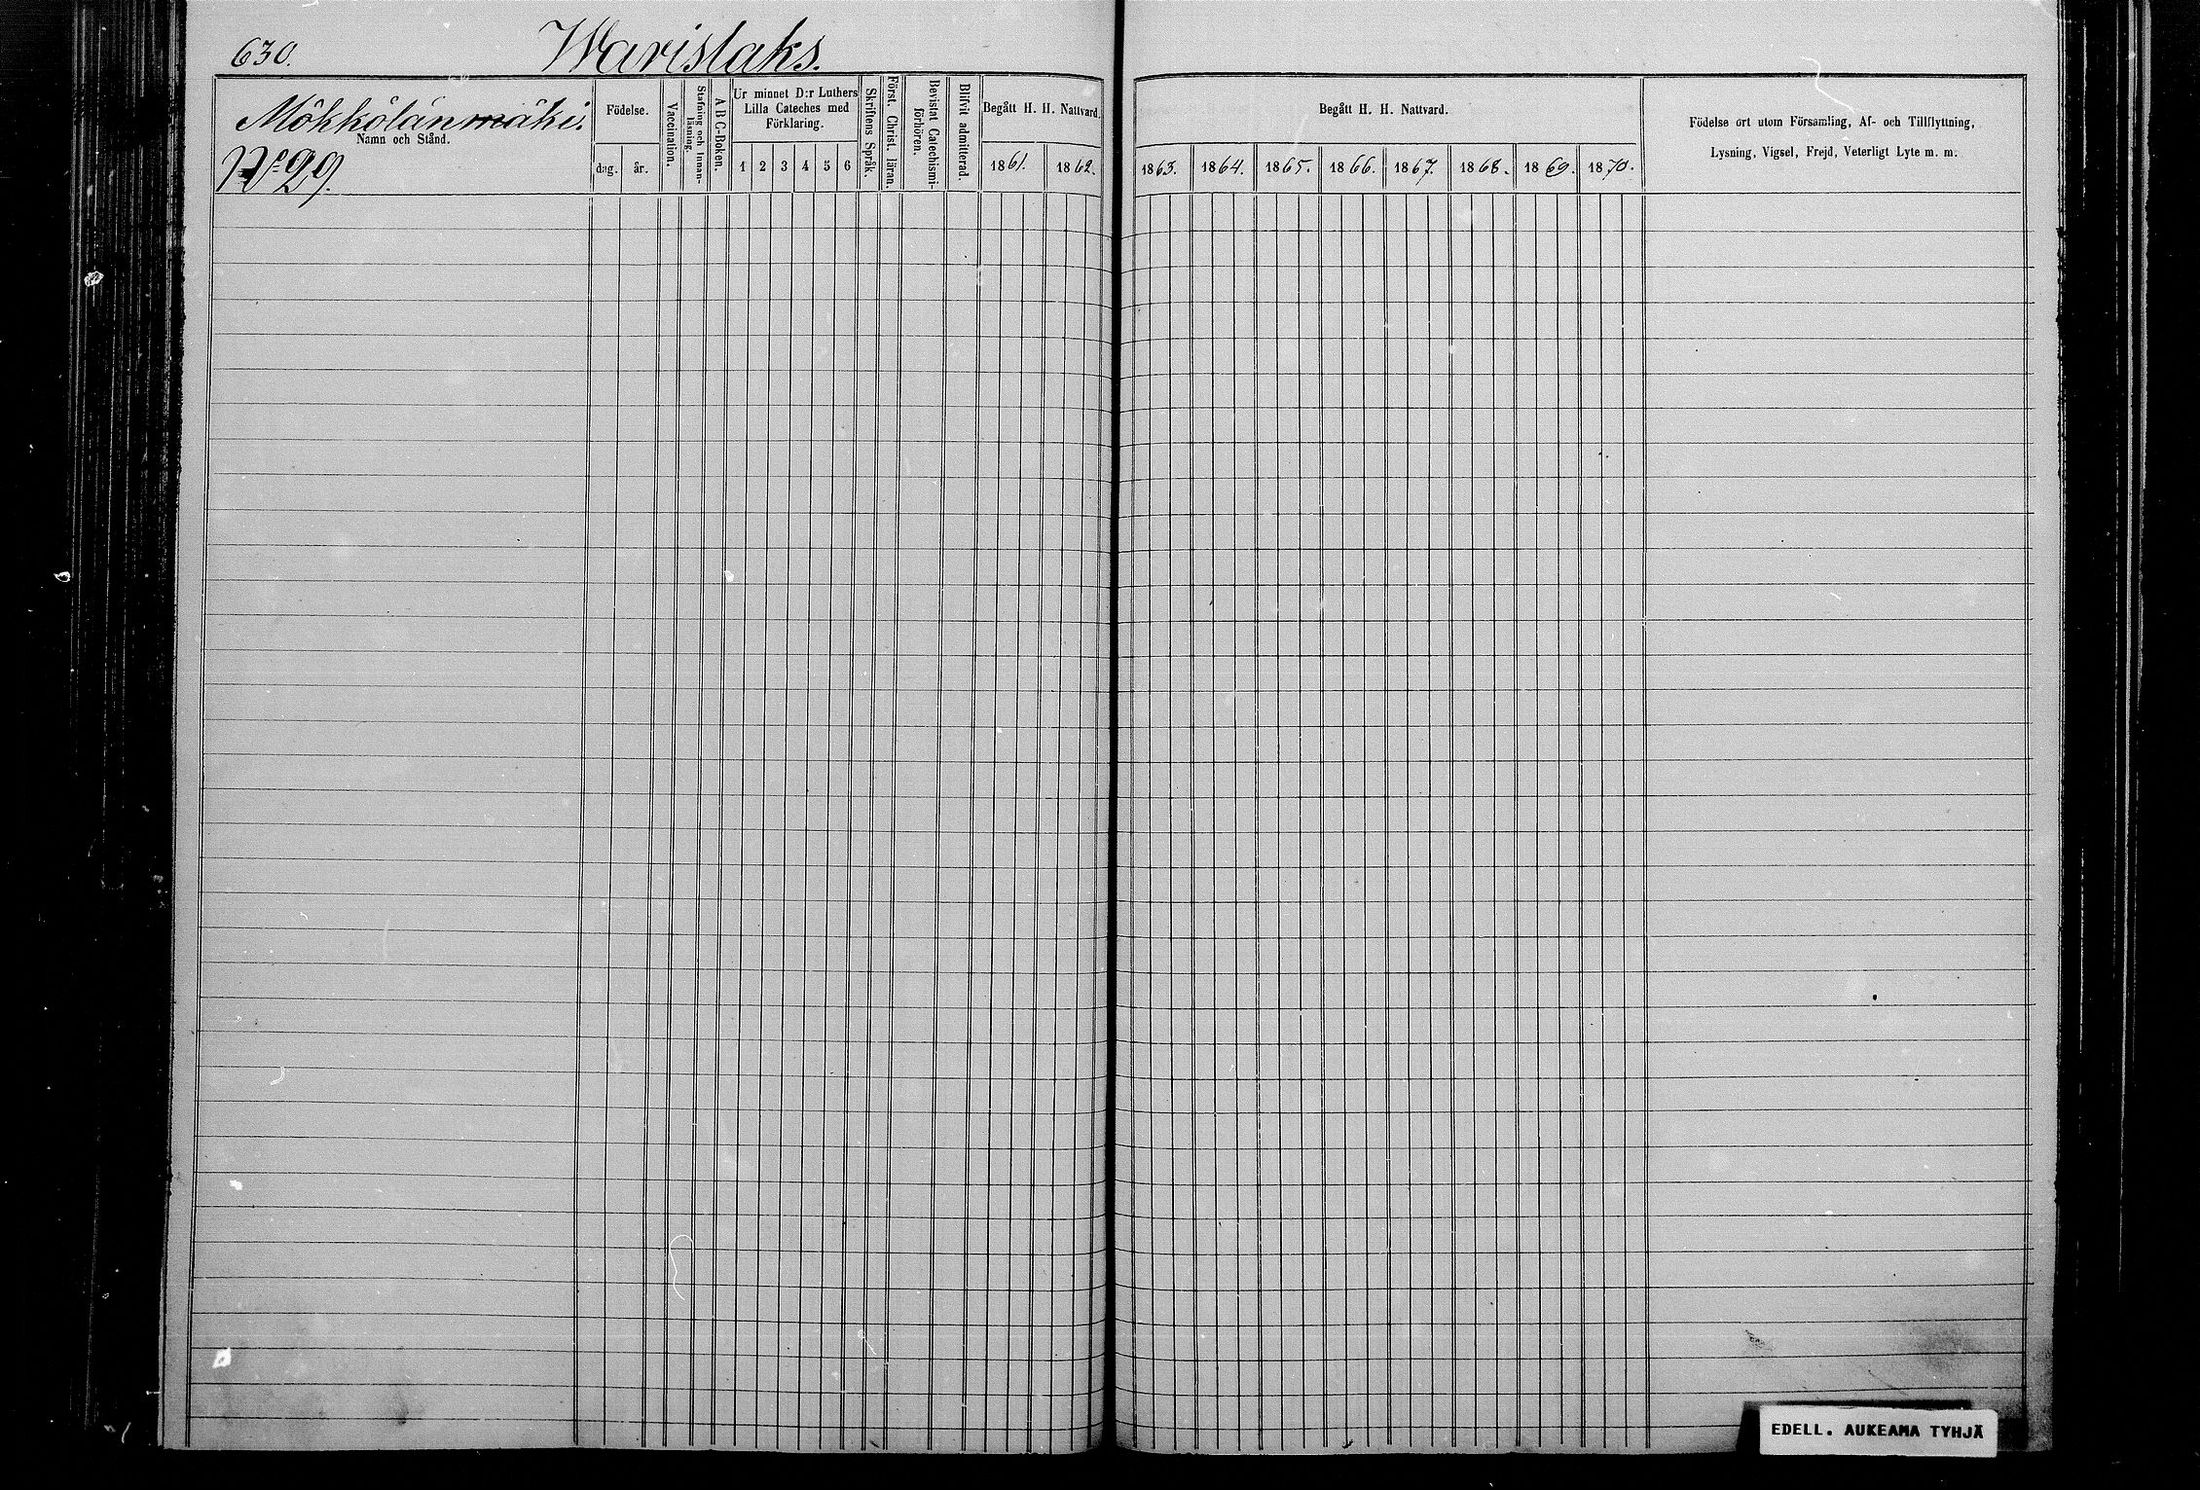 630.
Warislaks.
Mökkölänmäki.
Namn och Stånd.
No 29.
Födelse.
dag. år.
Vaccination.
Stafning och Innan-
läsning.
A B C-Boken.
Ur minnet D:r Luthers
Lilla Cateches med
Förklaring.
1 2 3 4 5 6
Skriftens Språk.
Först. Christ. läran.
Bevistat Catechismi-
förhören.
Blifvit admitterad.
Begått H. H. Nattvard.
1861. 1862.
Begått H. H. Nattvard.
1863. 1864. 1865. 1866. 1867. 1868. 1869. 1870.
Födelse ort utom Församling, Af- och Tillflyttning,
Lysning, Vigsel, Frejd, Veterligt Lyte m. m.
EDELL. AUKEAMA TYHJÄ